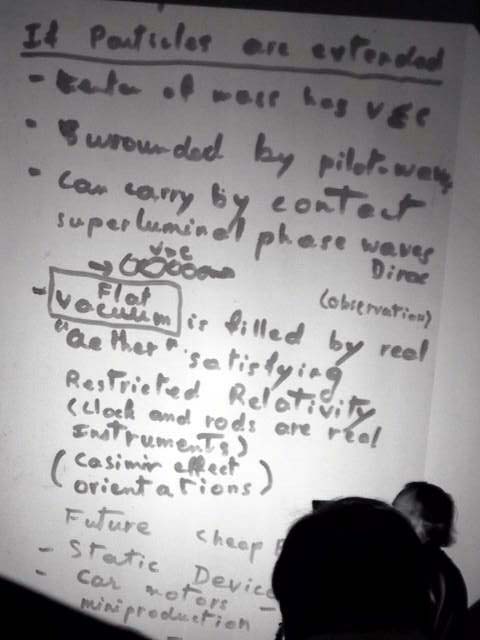 If Particles are extended
- Center of mass has v≤c
- Surounded by pilot-waves
- Can carry by contact
superluminal phase waves
v>c
Dirac
(observation)
- Flat
vacuum is filled by real
"aether" satisfying
Restricted Relativity
(clock and rods are real
Instruments)
(Casimir effect
orientations)
Future cheap
- Static Device
- Car motors -
miniproduction